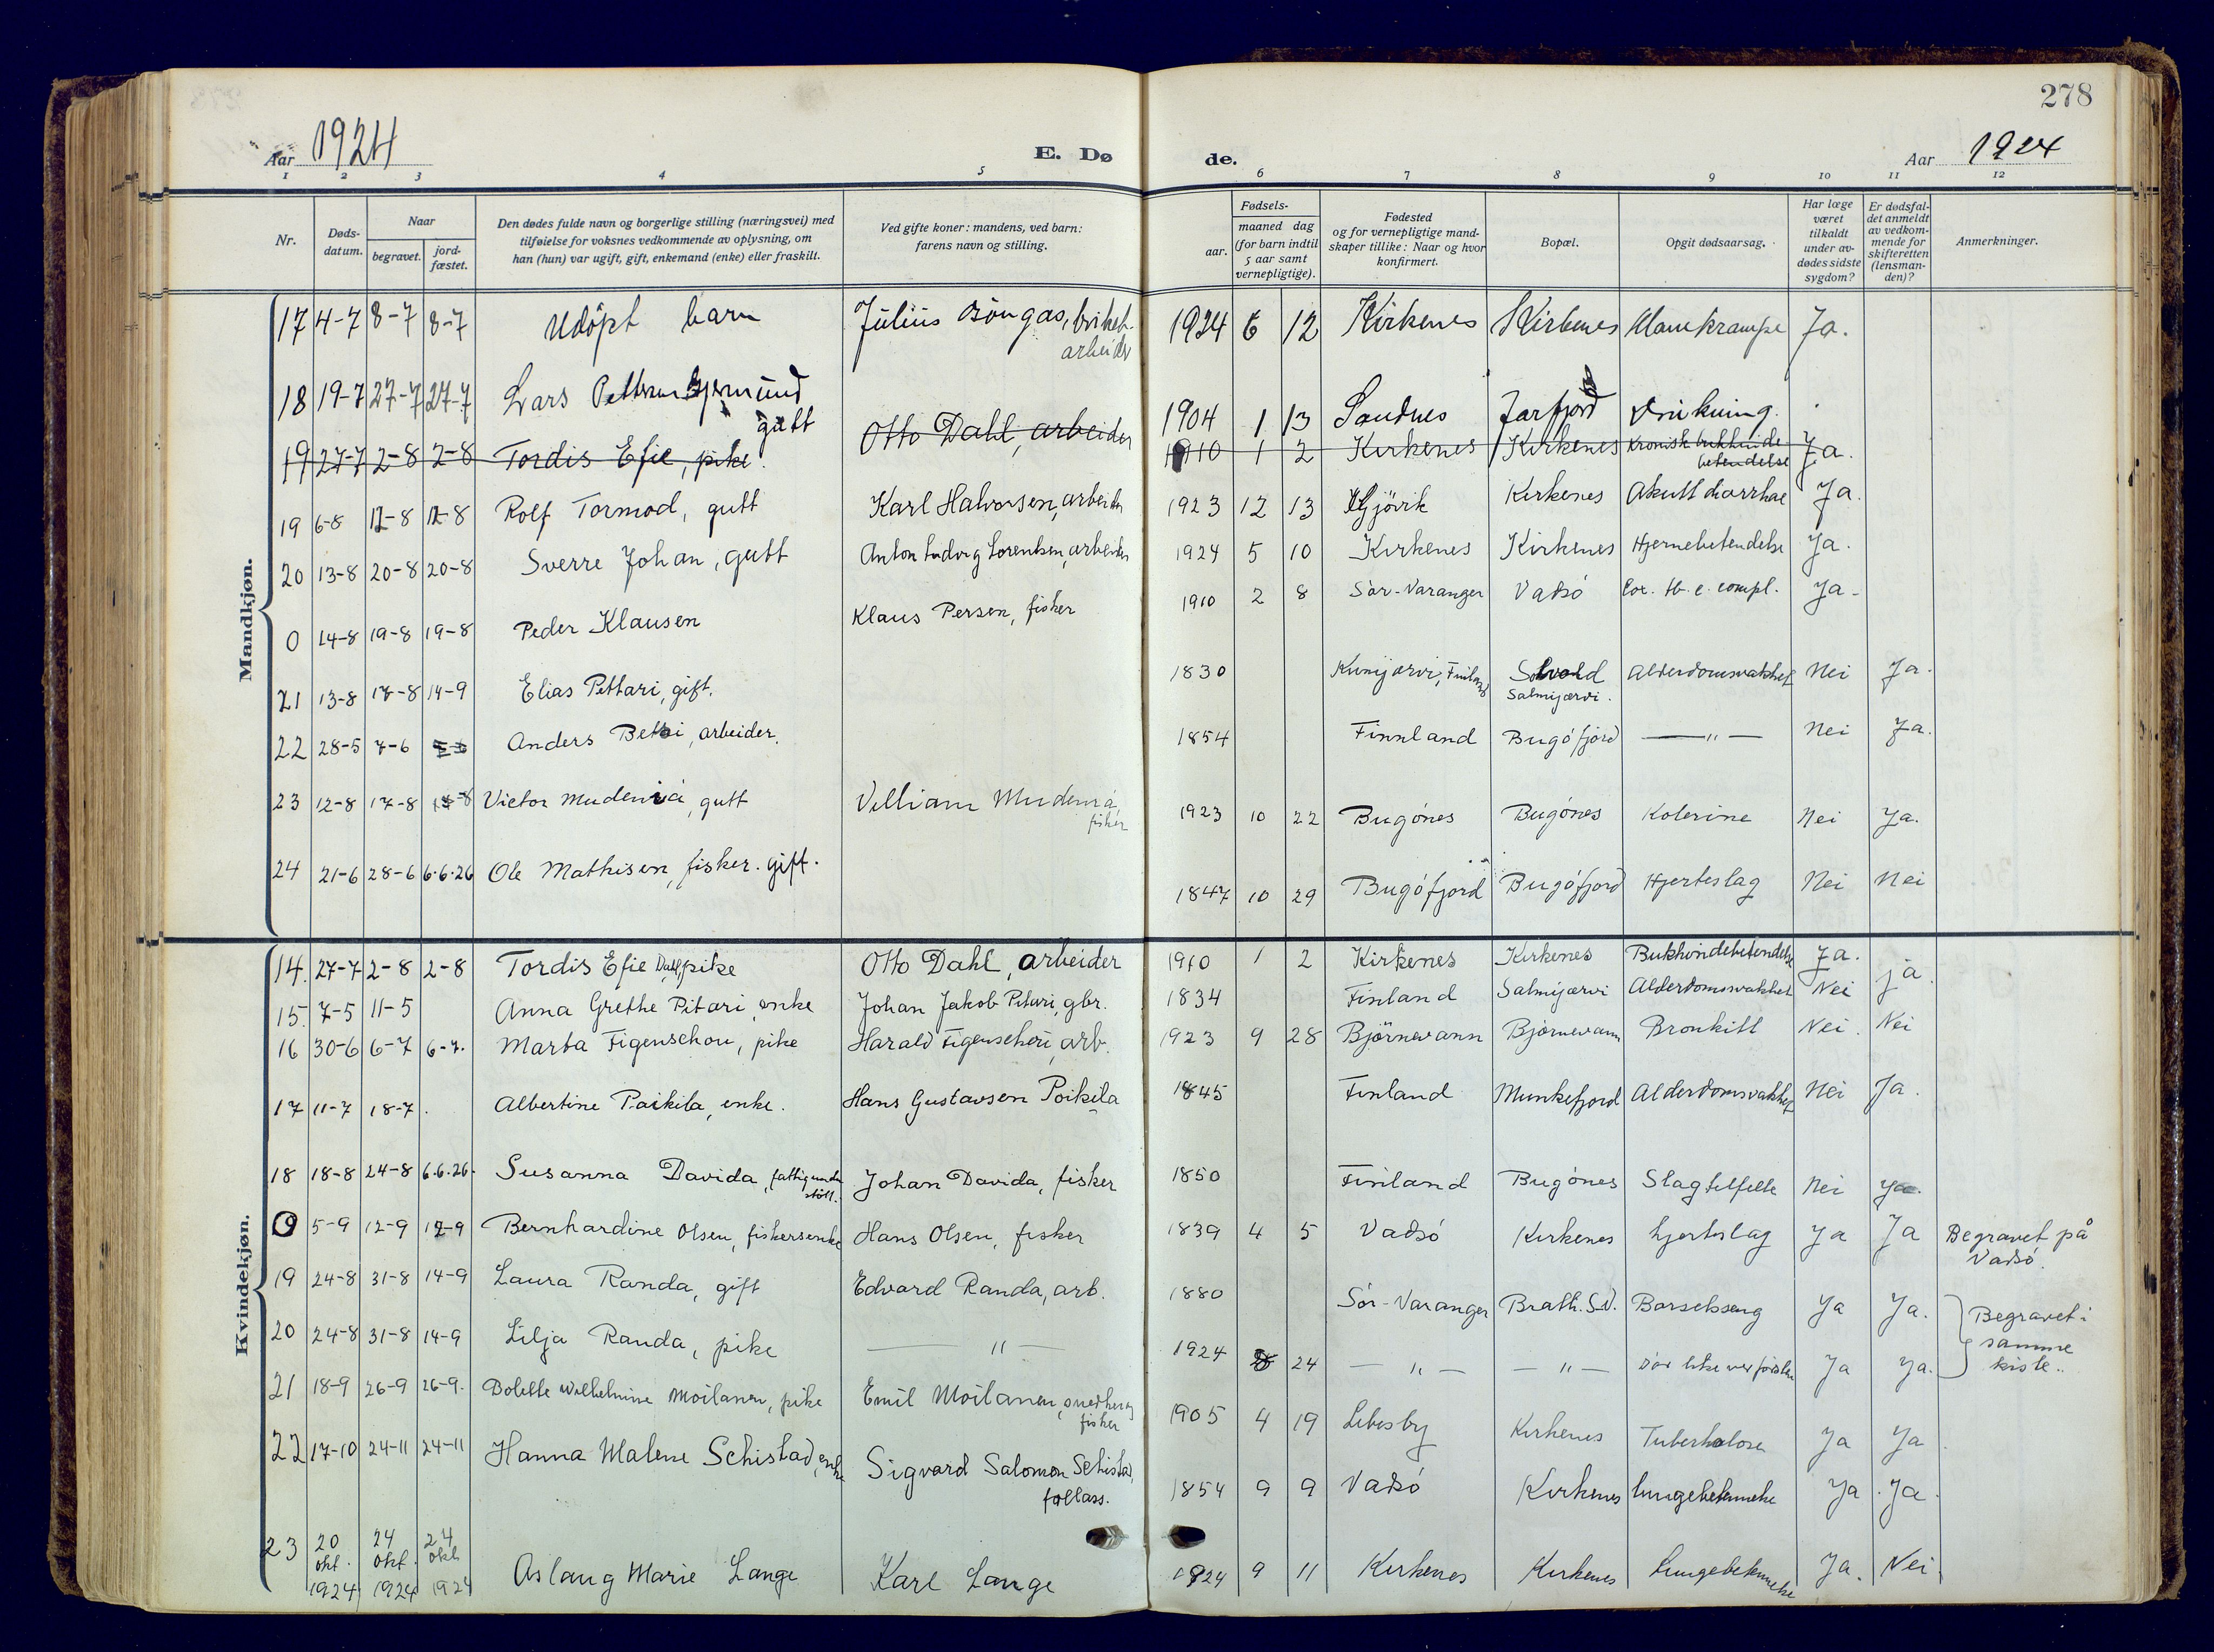 278
Aar 1924
E. Dø
de.
Aar 1924
1 2 3 4 5 6 7 8 9 10 11 12
Nr.
Døds-
datum.
Naar
begravet.
jord-
fæstet.
Den dødes fulde navn og borgerlige stilling (næringsvei) med
tilføielse for voksnes vedkommende av oplysning, om
han (hun) var ugift, gift, enkemand (enke) eller fraskilt.
Ved gifte koner: mandens, ved barn:
farens navn og stilling.
Fødsels-
aar.
maaned dag
(for barn indtil
5 aar samt
vernepligtige).
Fødested
og for vernepligtige mand-
skaper tillike: Naar og hvor
konfirmert.
Bopæl.
Opgit dødsaarsag.
Har læge
været
tilkaldt
under av-
dødes sidste
sygdom?
Er dødsfal-
det anmeldt
av vedkom-
mende for
skifteretten
(lensman-
den)?
Anmerkninger.
Mandkjøn.
17 4-7 8-7 8-7 Udöpt barn Julius
arbeider
1924 6 12 Kirkenes Kirkenes Ja.
18 19-7 27-7 27-7 Lars
gutt
1904 1 13 Sandnes Jarfjord Drukning.
19 27-7 2-8 2-8 Tordis Efie, pike. Otto Dahl, arbeider 1910 1 2 Kirkenes Kirkenes Kronisk bukhinde
betendelse Ja.
19 6-8 12-8 12-8 Rolf Tormod, gutt Karl Halvorsen, arbeider 1923 12 13 Gjövik Kirkenes Akutt diarrhae Ja.
20 13-8 20-8 20-8 Sverre Johan, gutt Anton Ludvig Lorentsen, arbeider 1924 5 10 Kirkenes Kirkenes Hjernebetendelse Ja.
0 14-8 19-8 19-8 Peder Klausen Klaus Persen, fisker 1910 2 8 Sör-Varanger Vadsö compl. Ja-
21 13-8 18-8 14-9 Elias Pettari, gift. 1830 Finland
Salmijærvi. Alderdomsvakhet Nei Ja.
22 28-5 7-6 Anders arbeider. 1854 Finnland Bugöfjord —"— Nei Ja.
23 12-8 17-8 Victor Mudeniá, gutt Villiam Mudeniá,
fisker
1923 10 22 Bugönes Bugönes Kolerine Nei Ja.
24 21-6 28-6 6-6-26 Ole Mathisen, fisker. gift. 1847 10 29 Bugöfjord Bugöfjord Hjerteslag Nei Nei
Kvindekjøn.
14. 27-7 2-8 2-8 Tordis Efie Dahl, pike Otto Dahl, arbeider 1910 1 2 Kirkenes Kirkenes Bukhindebetendelse Ja. ja.
15. 7-5 11-5 Anna Grethe Pitari, enke Johan Jakob Pitari, gbr. 1834 Finland Salmijærvi Alderdomsvakhet Nei
16 30-6 6-7 6-7. Marta Figenschou, pike Harald Figenschou, arb. 1923 9 28 Björnevann Björnevann Bronkitt Nei. Nei
17 11-7 18-7. Albertine Paikila, enke. Hans Gustavsen Poikila 1845 Finland Munkefjord Alderdomsvakhet Nei Ja.
18 18-8 24-8 6.6.26. Susanna Davida, fattigunder
stött. Johan Davida, fisker 1850 Finland Bugönes Slagtilfelle Nei ya.
0 5-9 12-9 12-9 Bernhardine Olsen, fiskersenke Hans Olsen, fisker 1839 4 5 Vadsö Kirkenes hjerteslag Ja Ja Begravet på
Vadsö.
19 24-8 31-8 14-9 Laura Randa, gift Edvard Randa, arb. 1880 Sör-Varanger Brath. S.V. Barselseng Ja Ja. Begravet i
samme
kiste..
20 24-8 31-8 14-9 Lilja Randa, pike —"— 1924 8 24 —"— —"— Ja Ja.
21 18-9 26-9 26-9. Bolette Wilhelmine Moilanen, pike Emil Moilanen, snedker og
fisker
1905 4 19 Lebesby Kirkenes Tuberkulose Ja Ja
22 17-10 24-11 24-11 Hanna Malene Schistad, enke Sigvard Salomon Schistad,
tollass.
1854 9 9 Vadsö Kirkenes lungebetennelse Ja Ja.
23 20
okt.
1924 24
okt.
1924 24
okt
1924 Aslaug Marie Lange Karl Lange 1924 9 11 Kirkenes Kirkenes Lungebetennelse Ja. Nei.